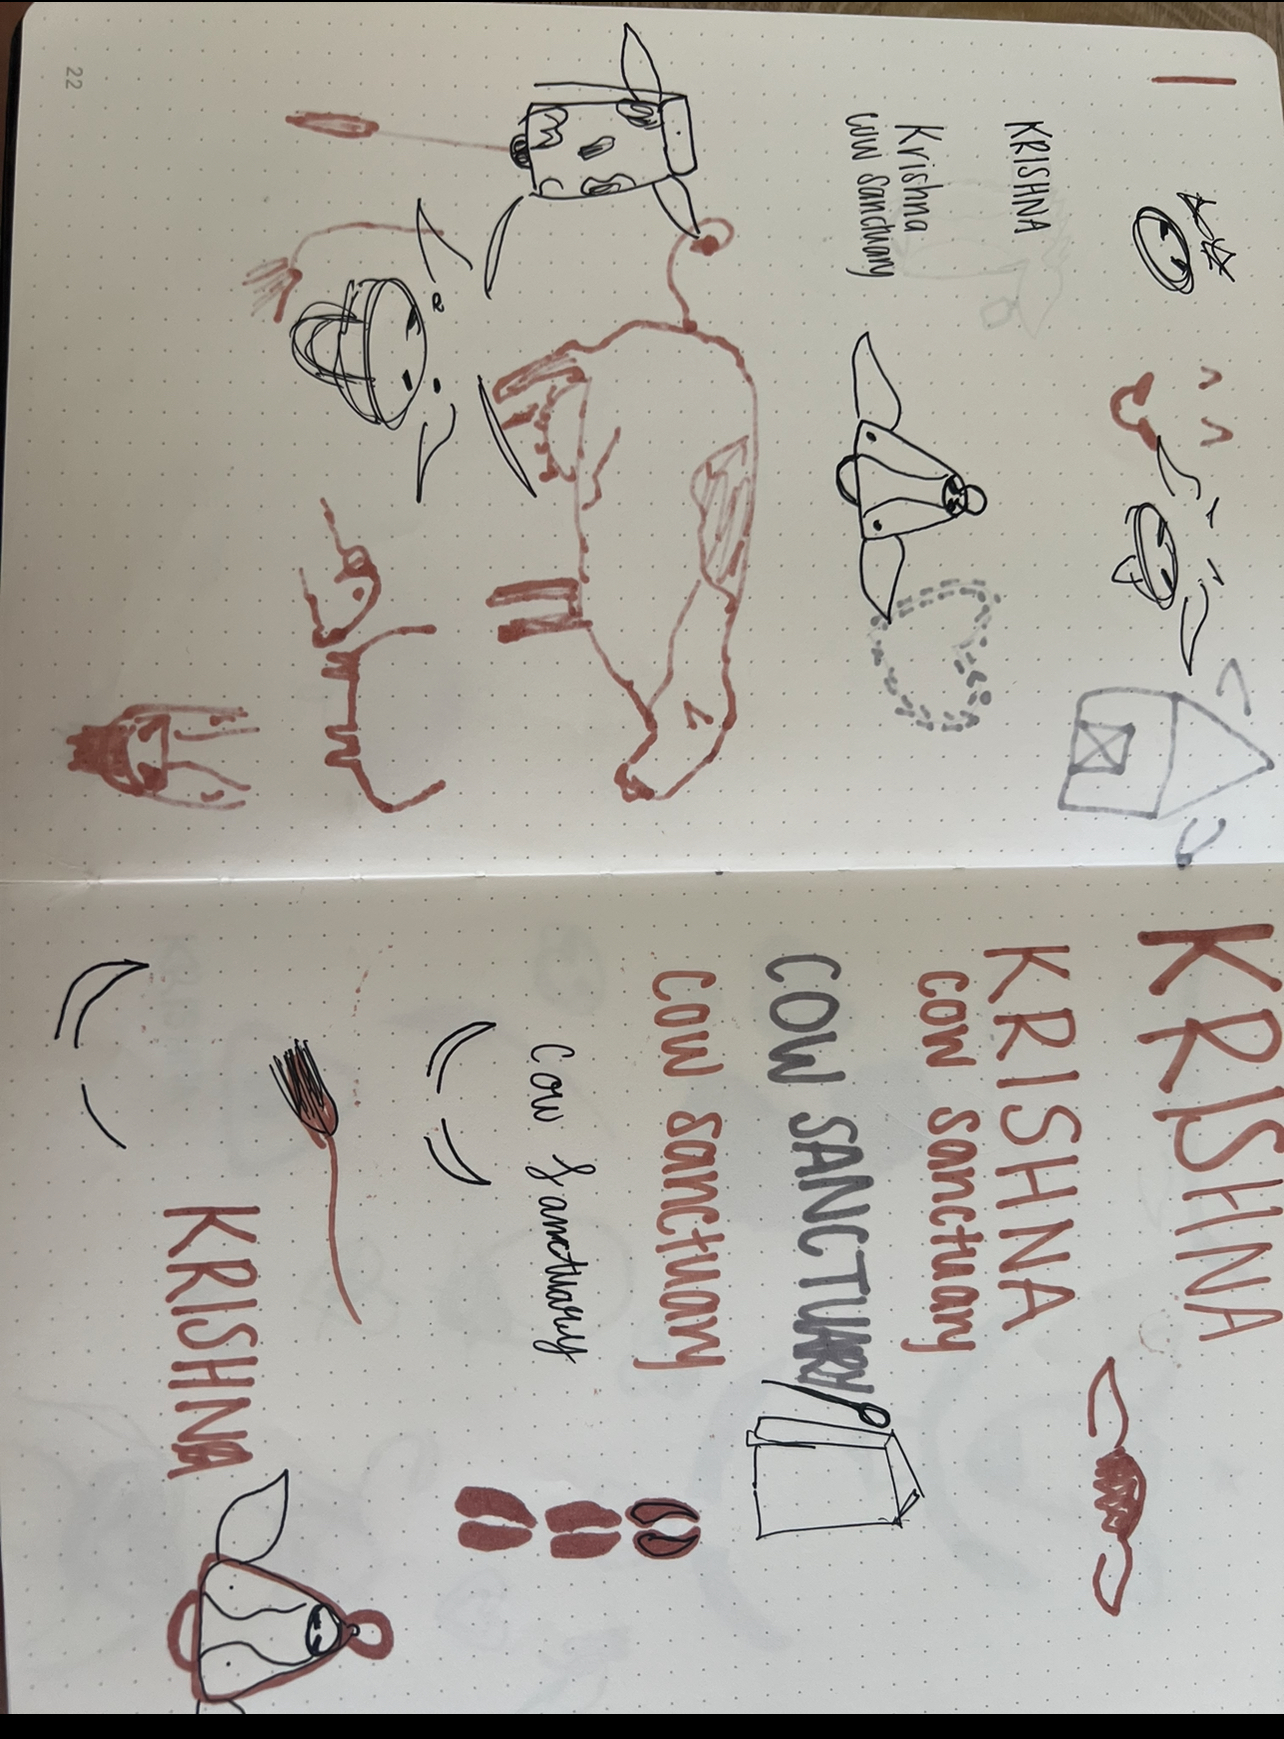 KRISHNA
Krishna
cow sanctuary
22
KRISHNA
KRISHNA
cow sanctuary
COW SANCTUARY
cow sanctuary
Cow Sanctuary
KRISHNA